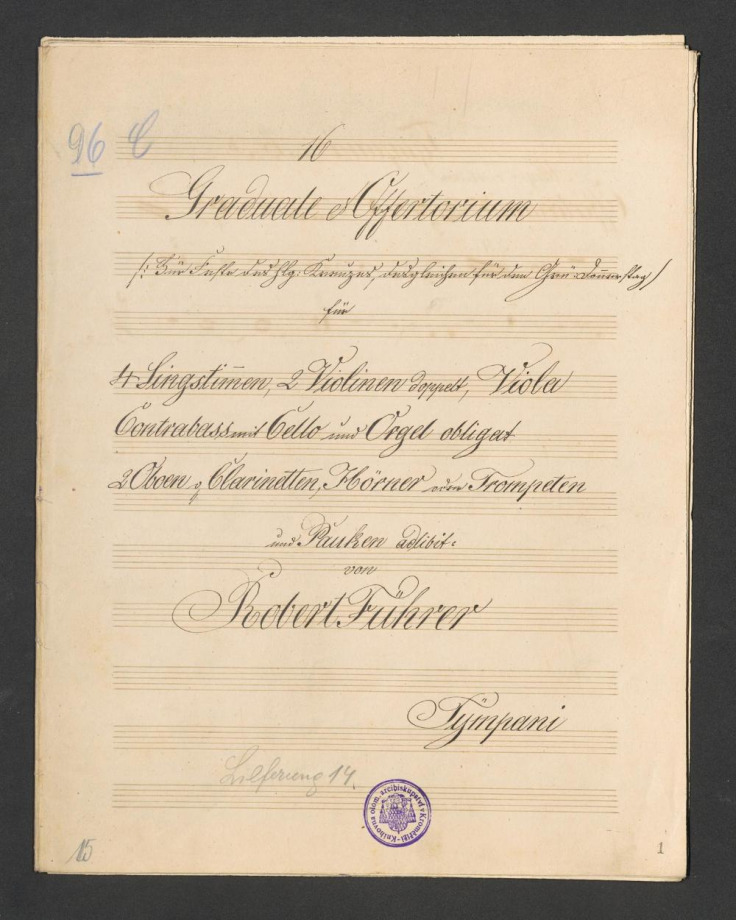 96 C
16
Graduale et Offertorium
/: Für Feste des hlg: Kreuzes, desgleichen für den Grün-Donnerstag /
für
4 Singstim̄en, 2 Violinen doppelt, Viola
Contrabass mit Cello und Orgel obligat
2 Oboen, Clarinetten, Hörner oder Trompeten
und Pauken adlibit:
von
Robert Führer
Tÿmpani
Lieferung 14.
Knihovna olom. arcibiskupství v Kroměříži
15
1